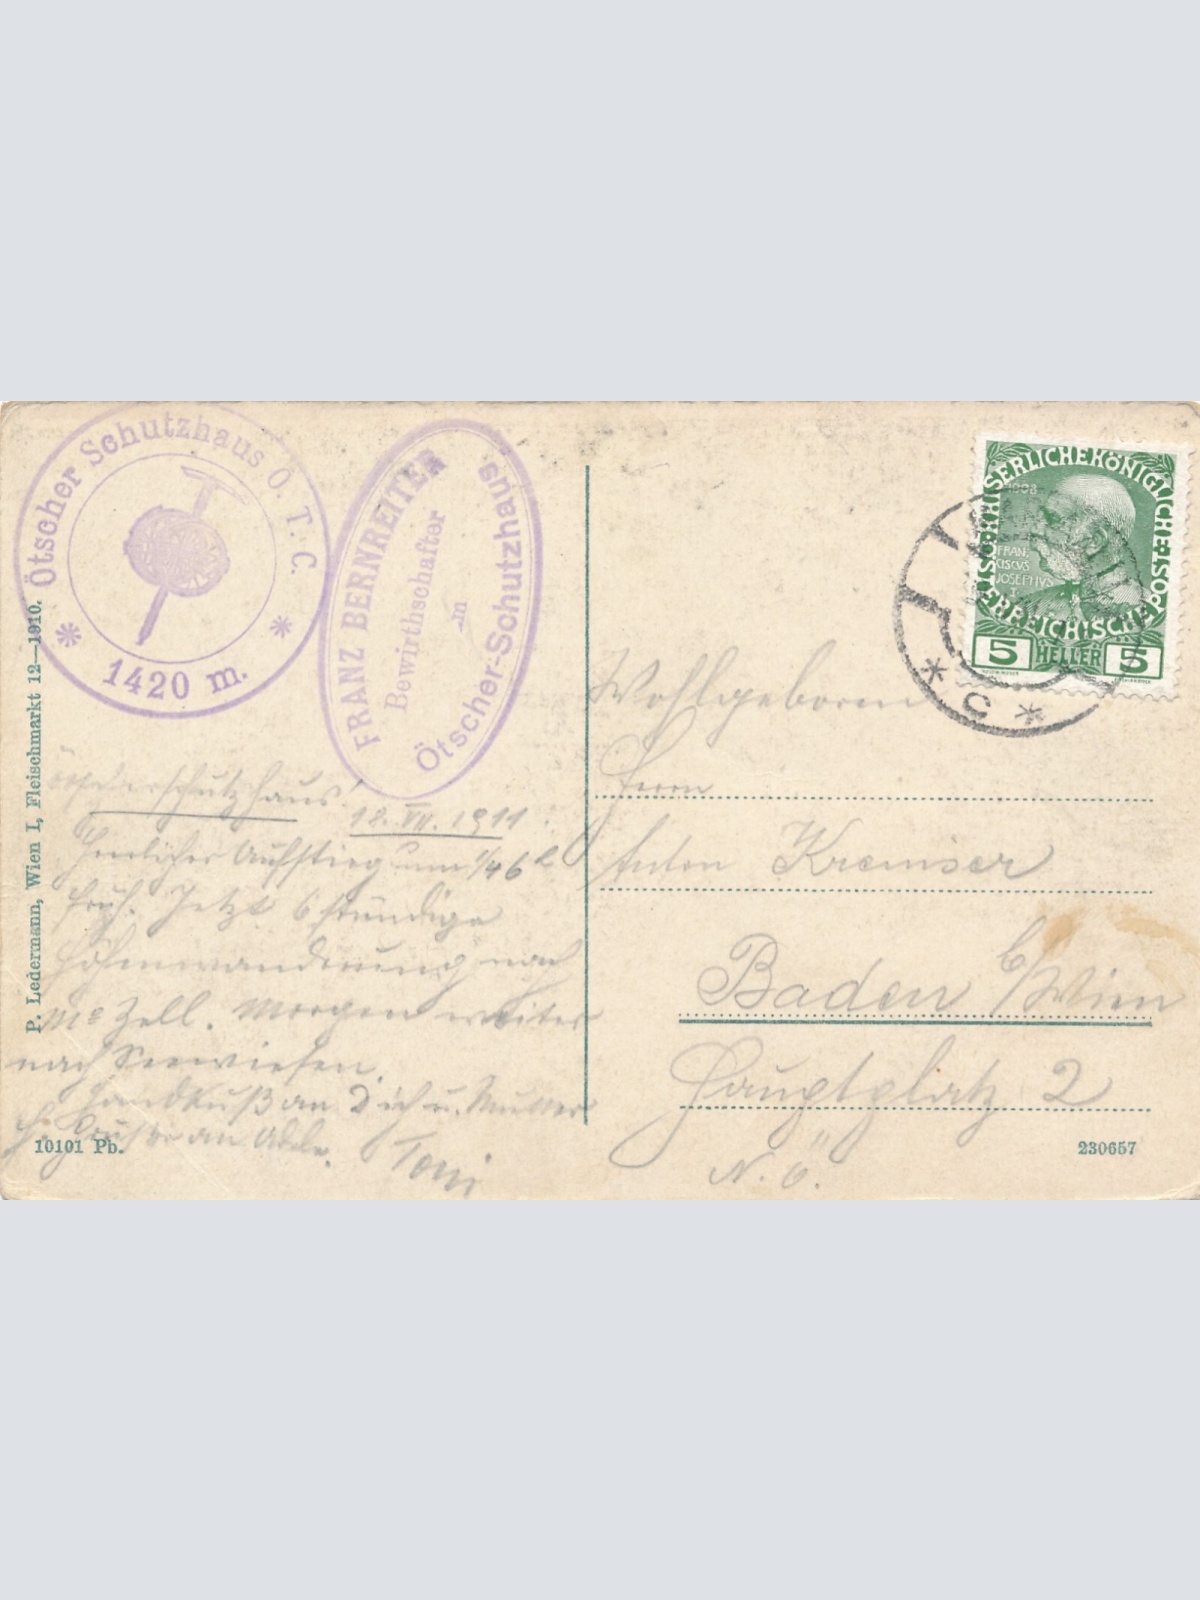 Ötscher Schutzhaus Ö. T. C.
1420 m.
FRANZ BERNREITER
Bewirthschafter
im
Ötscher-Schutzhaus
P. Ledermann, Wien I, Fleischmarkt 12—1910.
Ötscherschutzhaus
18. VII. 1911.
Herrlicher Aufstieg um 1/4 6 h
früh. Jetzt 6 stündige
Höhenwanderung nach
Mª Zell. Morgen weiter
nach Seewiesen.
Handkuß an Dich u. Mutter
Grüße an Adele.
Toni
10101 Pb.
KAISERLICHE KÖNIGLICHE
ÖSTERREICHISCHE POST
1908
FRAN
CISCVS
JOSEPHVS
I
5 HELLER 5
* c *
Wohlgeboren
Herrn
Anton Kremser
Baden b/Wien
Hauptplatz 2
N. Ö.
230657